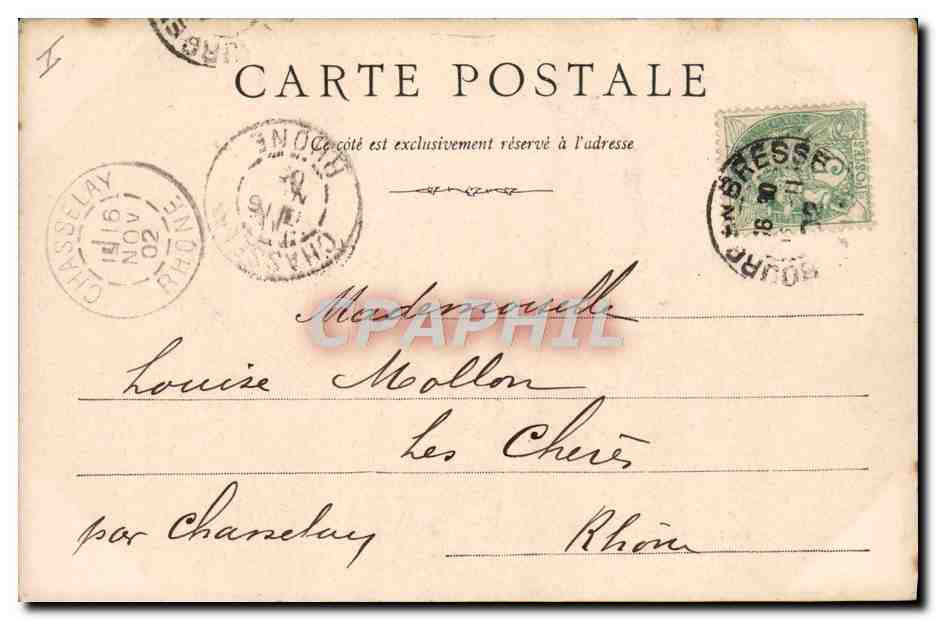 CARTE POSTALE
Ce côté est exclusivement réservé à l'adresse
BRESSE
CHASSELAY
16
NOV
02
RHÔNE
RHONE
CHASSE
CPAPHIL
Mademoiselle
Louise Mollon
Les Cherès
par Chasselay Rhône